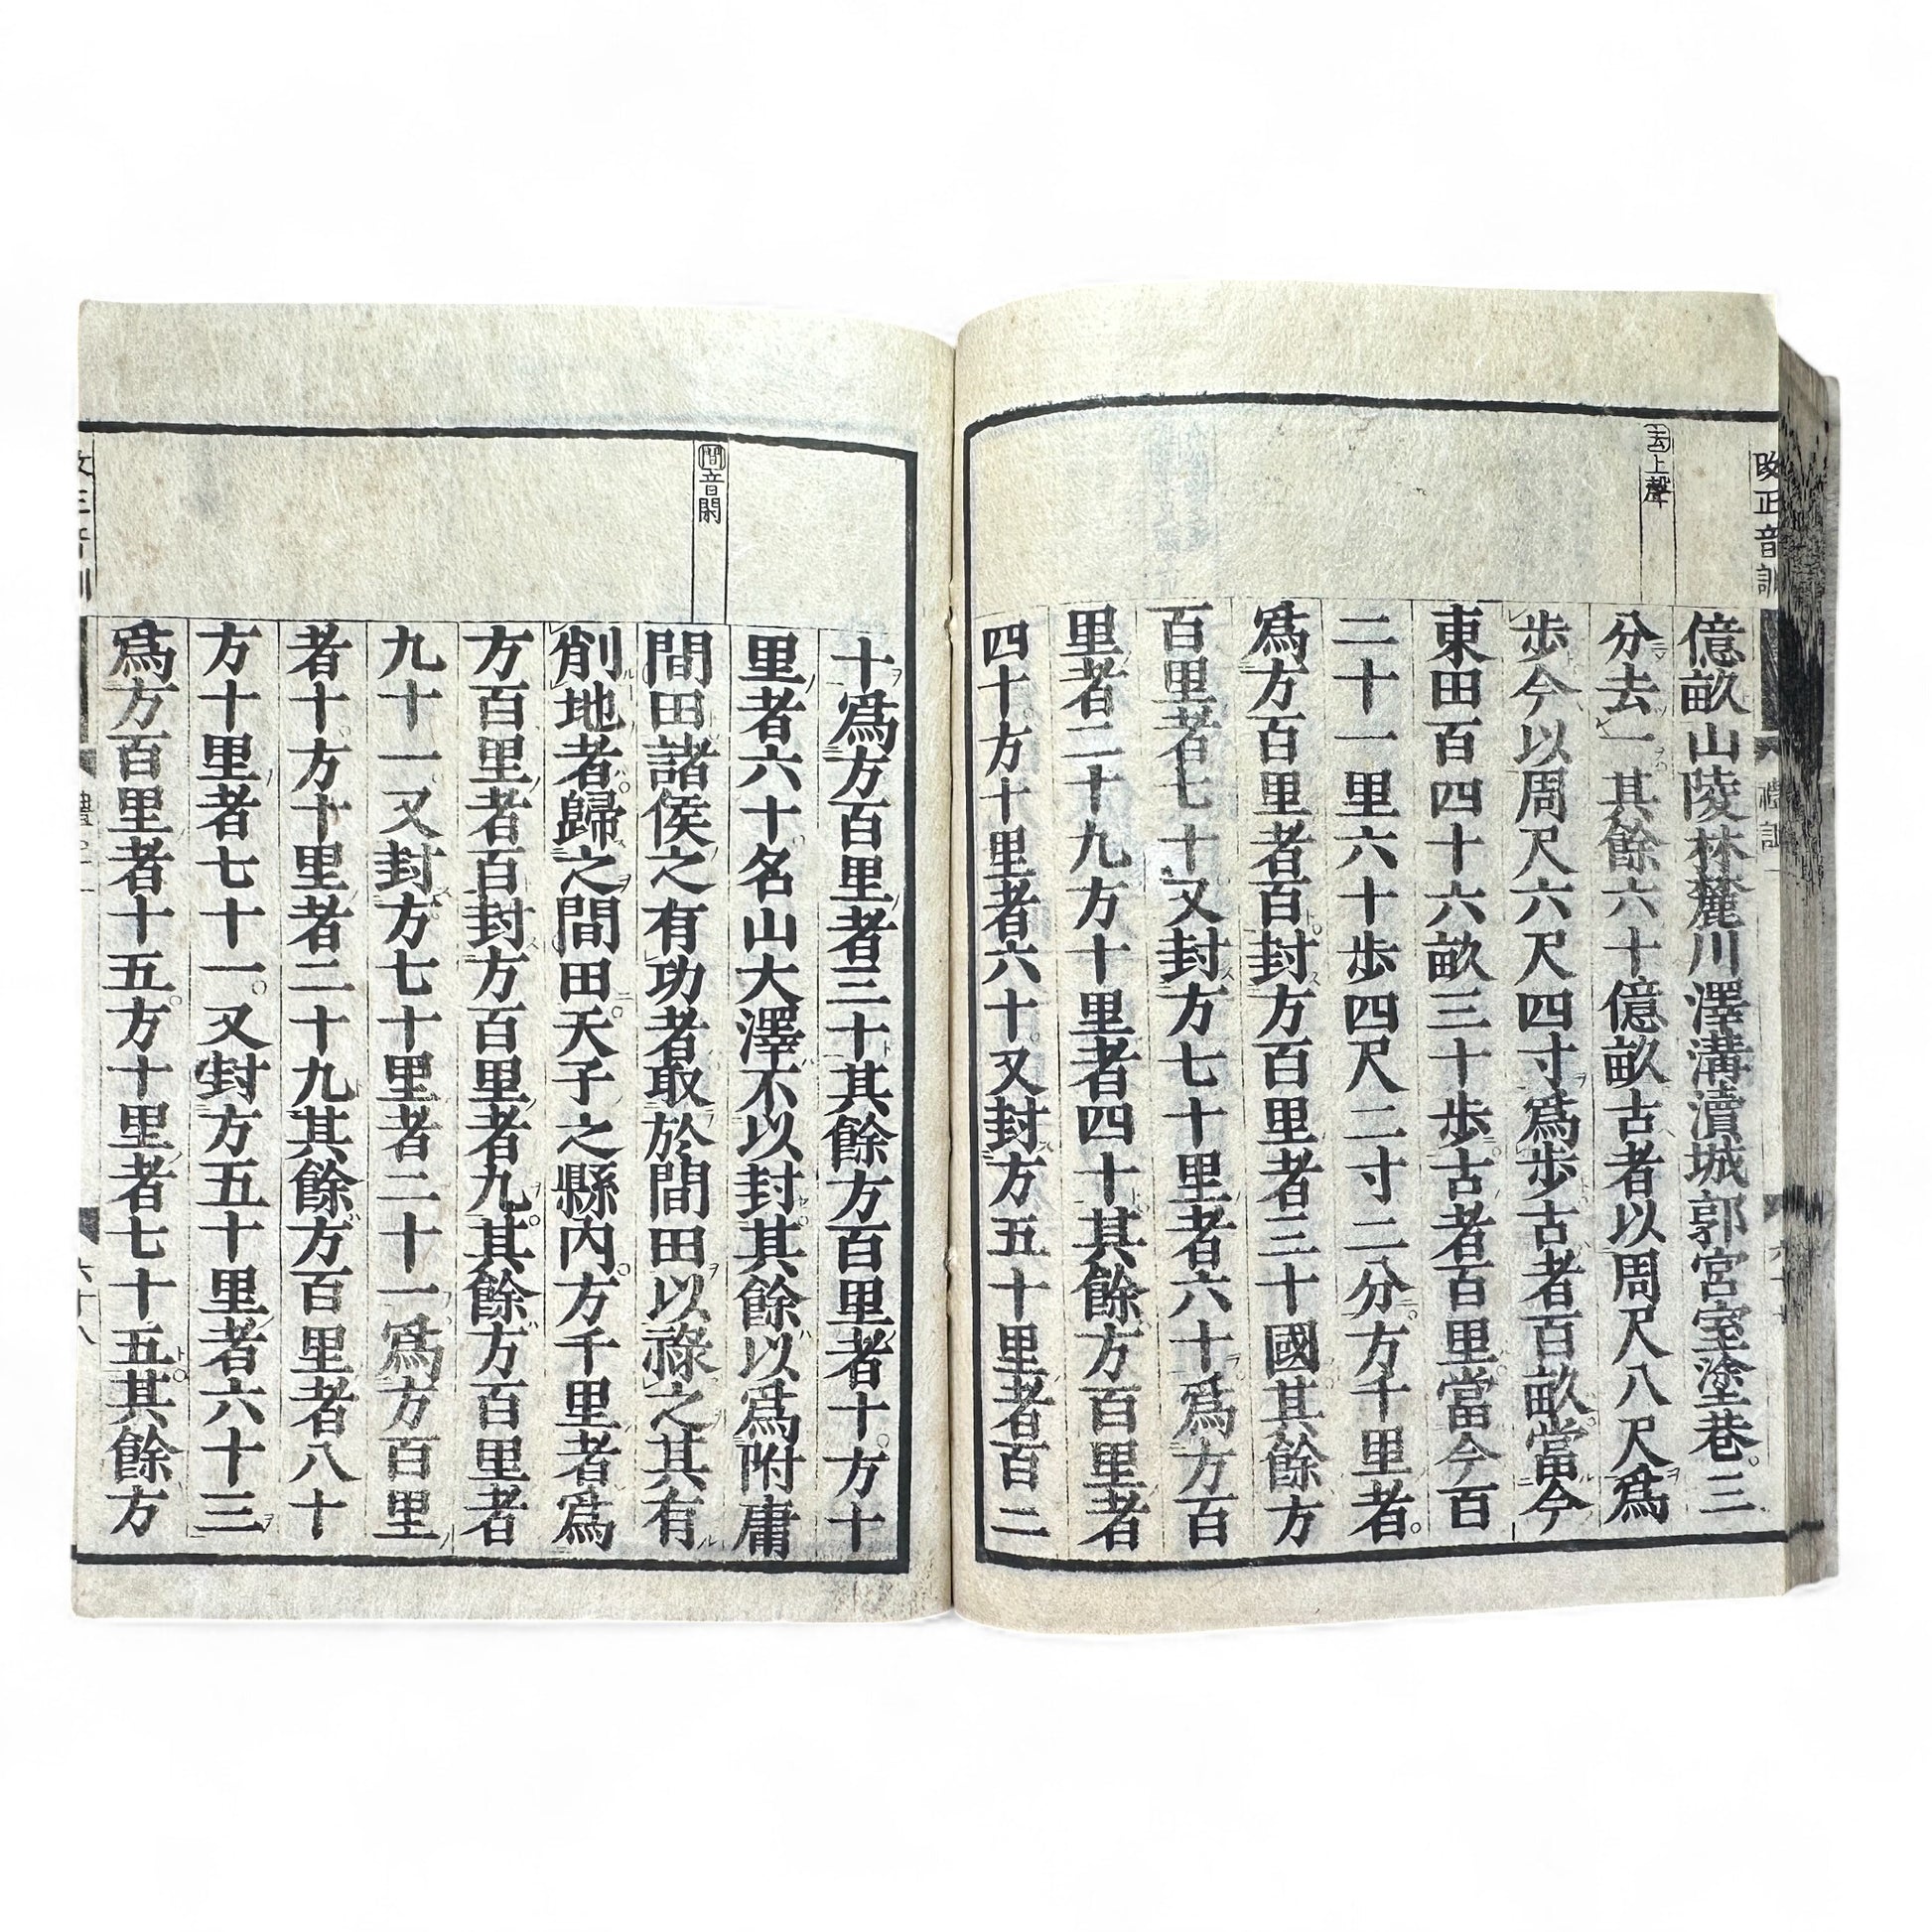 改正音訓
禮記
去上聲
億畝山陵林麓川澤溝瀆城郭宮室塗巷三
分去一其餘六十億畝古者以周尺八尺爲
歩今以周尺六尺四寸爲歩古者百畝當今
東田百四十六畝三十歩古者百里當今百
二十一里六十歩四尺二寸二分方千里者
爲方百里者百封方百里者三十國其餘方
百里者七十又封方七十里者六十爲方百
里者二十九方十里者四十其餘方百里者
四十方十里者六十又封方五十里者百二
間音閑
十爲方百里者三十其餘方百里者十方十
里者六十名山大澤不以封其餘以爲附庸
間田諸侯之有功者取於間田以祿之其有
削地者歸之間田天子之縣内方千里者爲
方百里者百封方百里者九其餘方百里者
九十一又封方七十里者二十一爲方百里
者十方十里者二十九其餘方百里者八十
方十里者七十一又封方五十里者六十三
爲方百里者十五方十里者七十五其餘方
六十八